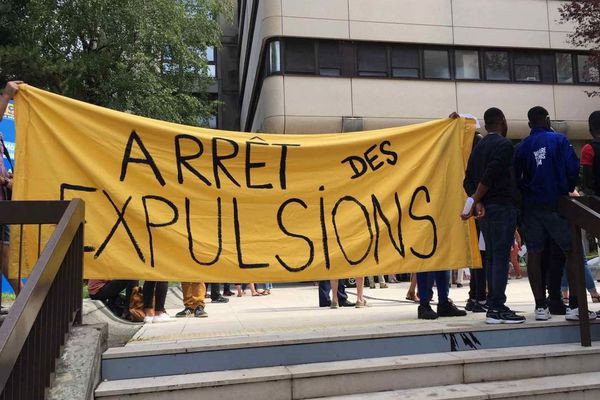 ARRÊT DES
EXPULSIONS